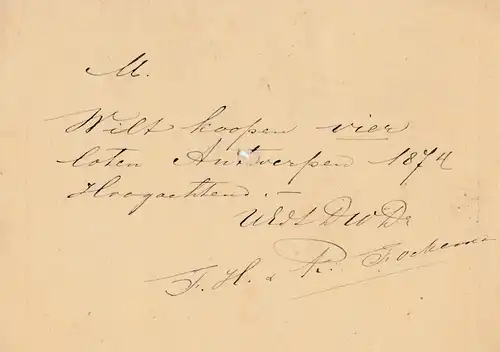 M.
Wilt koopen vier
loten Antwerpen 1874
Hoogachtend. -
UEdl DW Dr
F. H. & K. Fockema